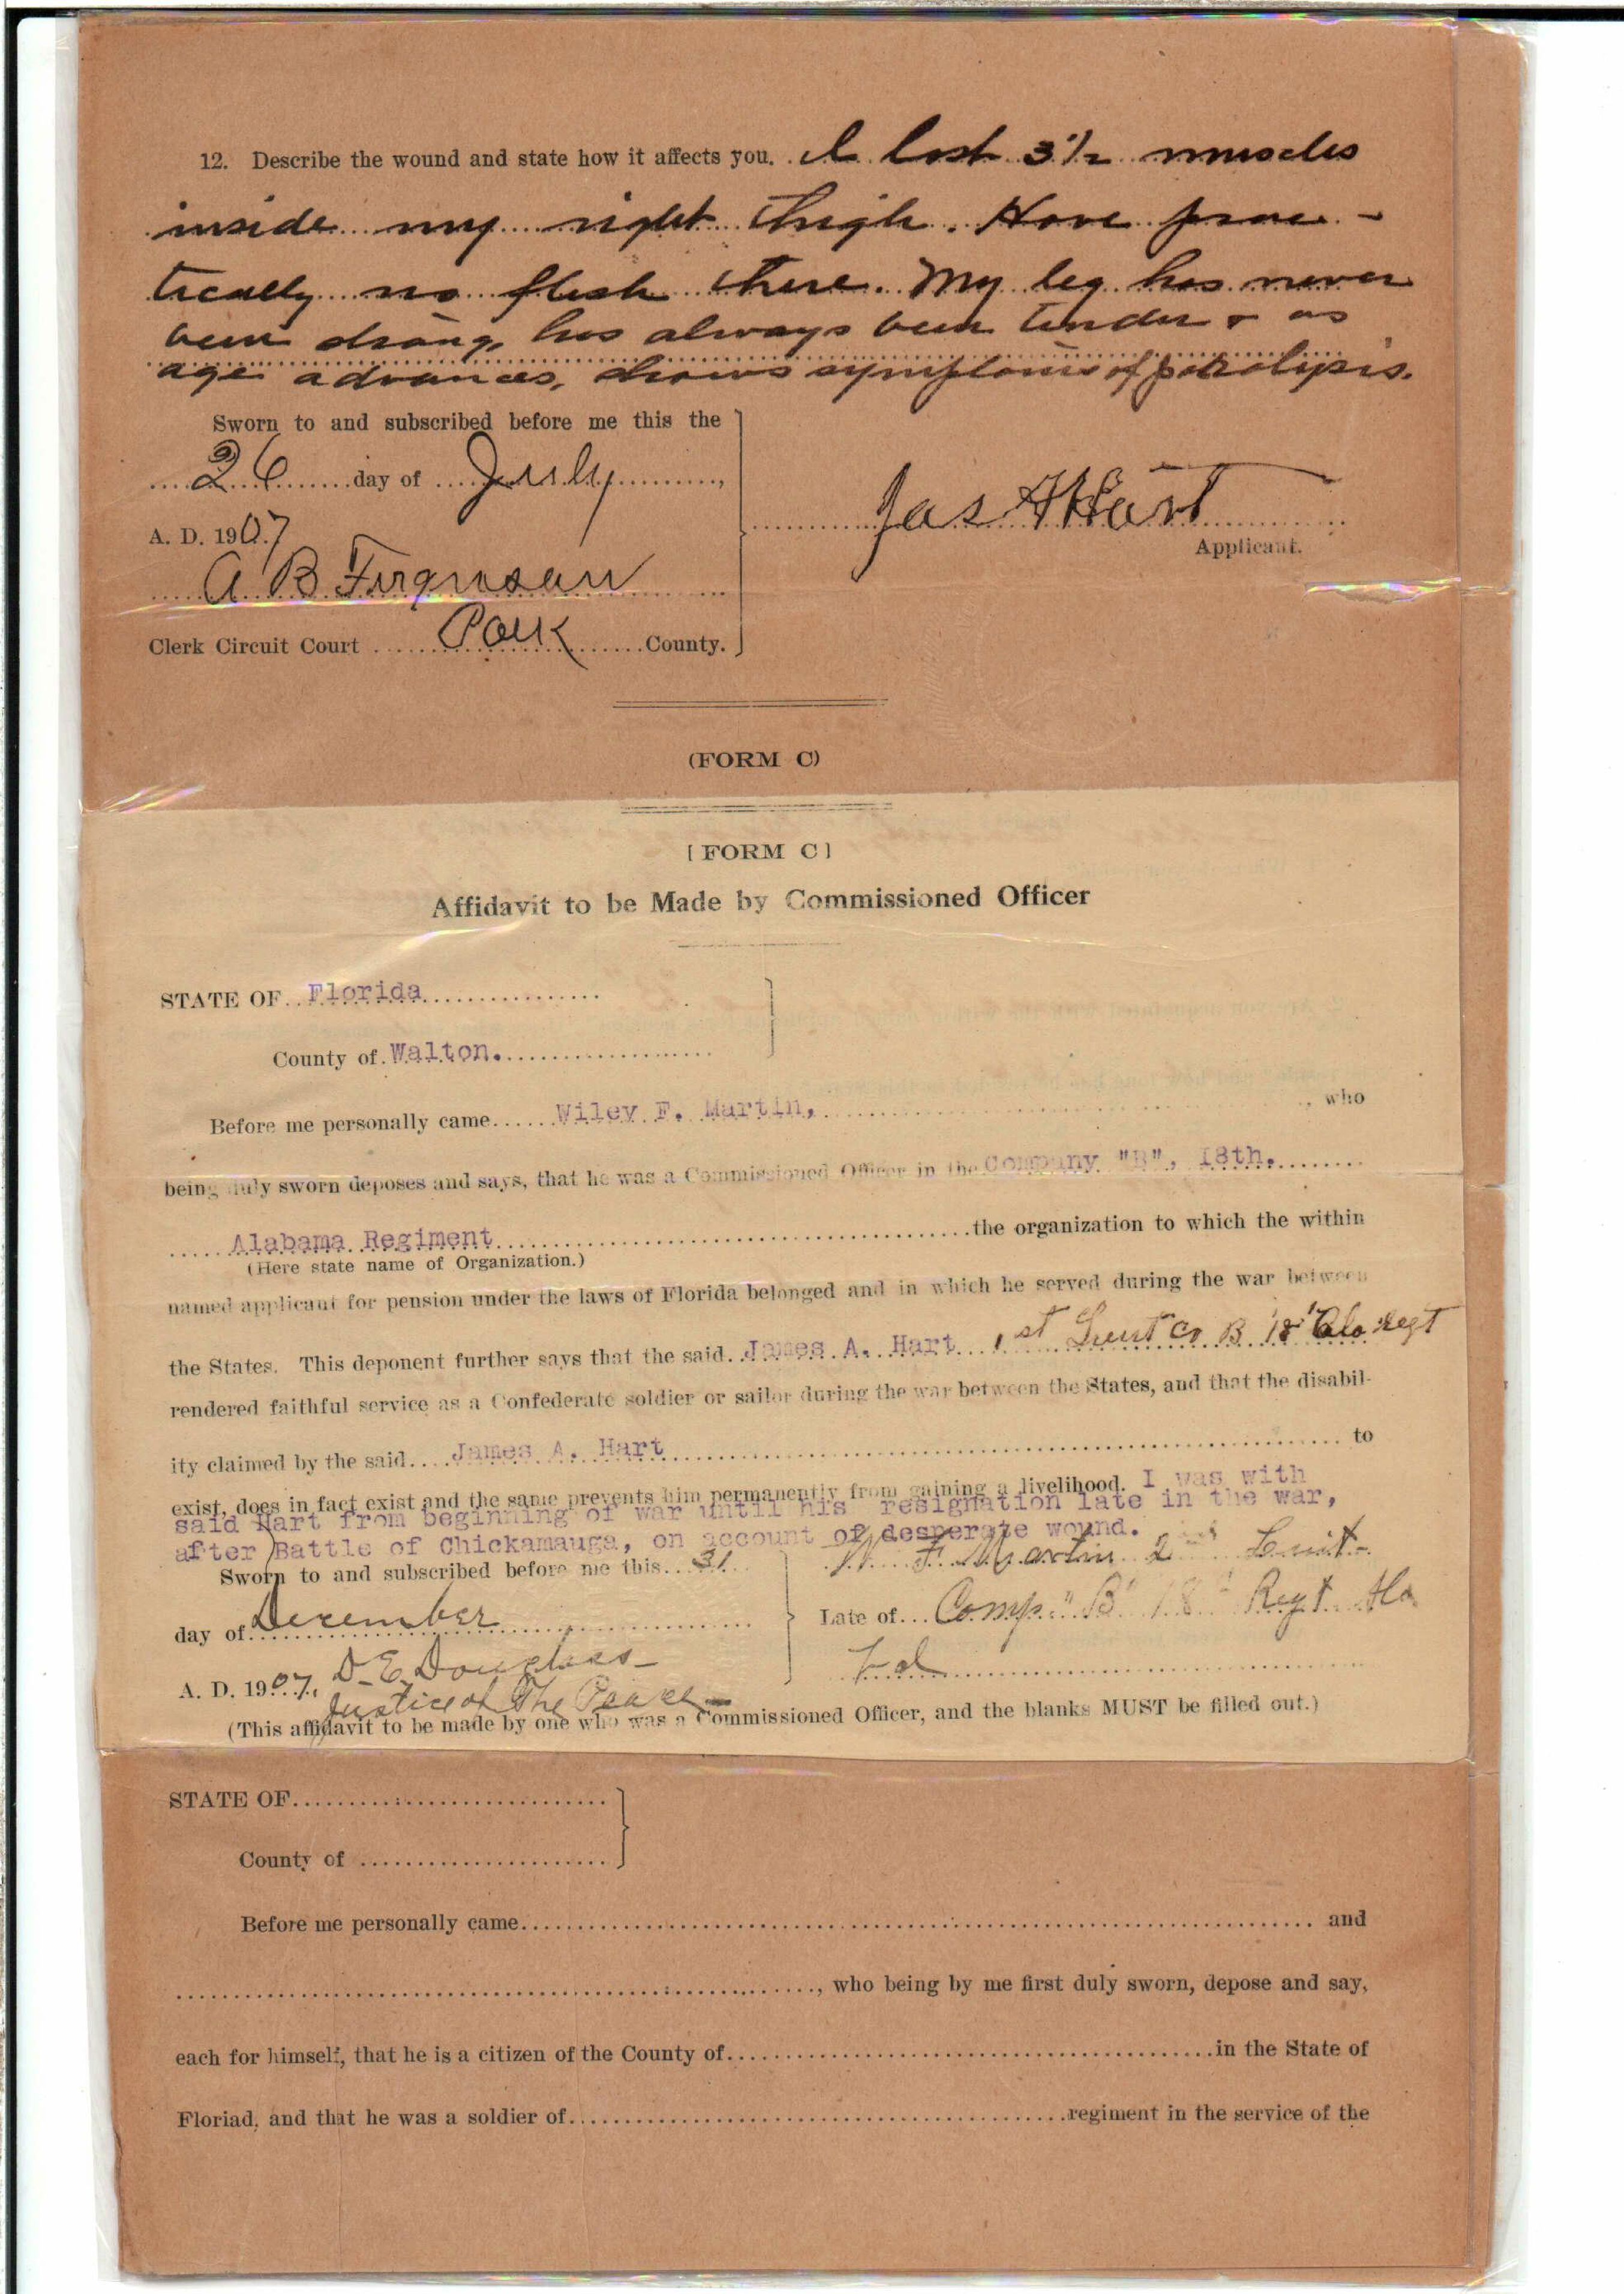 12. Describe the wound and state how it affects you. I lost 3 1/2 muscles
inside my right thigh. Have prac-
tically no flesh there. My leg has never
been strong, has always been tender & as
age advances, shows symptoms of paralysis.
Sworn to and subscribed before me this the
26 day of July,
A. D. 1907
Jas A Hart
Applicant.
A B Ferguson
Clerk Circuit Court Polk County.
(FORM C)
[FORM C]
Affidavit to be Made by Commissioned Officer
STATE OF Florida
County of Walton.
Before me personally came Wiley F. Martin, who
being duly sworn deposes and says, that he was a Commissioned Officer in the Company "B", 18th.
Alabama Regiment the organization to which the within
(Here state name of Organization.)
named applicant for pension under the laws of Florida belonged and in which he served during the war between
the States. This deponent further says that the said James A. Hart 1st Lieut Co B 18" Ala Regt
rendered faithful service as a Confederate soldier or sailor during the war between the States, and that the disabil-
ity claimed by the said James A. Hart to
exist, does in fact exist and the same prevents him permanently from gaining a livelihood. I was with
said Hart from beginning of war until his resignation late in the war,
after Battle of Chickamauga, on account of desperate wound.
Sworn to and subscribed before me this 31
W. F. Martin 2nd Lieut
day of December
Late of Comp. "B" 18th Regt Ala
A. D. 1907, D. E. Douglass
Justice of The Peace
(This affidavit to be made by one who was a Commissioned Officer, and the blanks MUST be filled out.)
STATE OF
County of
Before me personally came and
, who being by me first duly sworn, depose and say,
each for himself, that he is a citizen of the County of in the State of
Floriad, and that he was a soldier of regiment in the service of the